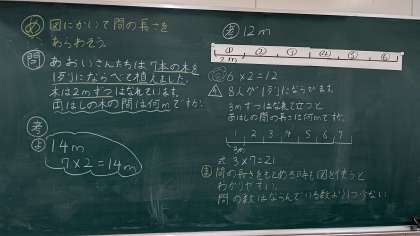 め 図にかいて間の長さを
あらわそう。
問 あおいさんたちは7本の木を
1列にならべて植えました。
木は2mずつはなれています。
両はしの木の間は何mですか。
考
よ 14m
7×2=14m
答 12m
① ② ③ ④ ⑤ ⑥
2m
6×2=12
8人が1列にならびます。
3mずつはなれて立つと
両はしの間の長さは何mですか。
1 2 3 4 5 6 7
3m
式 3×7=21
ま 間の長さをもとめる時も図を使うと
わかりやすい。
間の数はならんでいる数より1つ少ない。